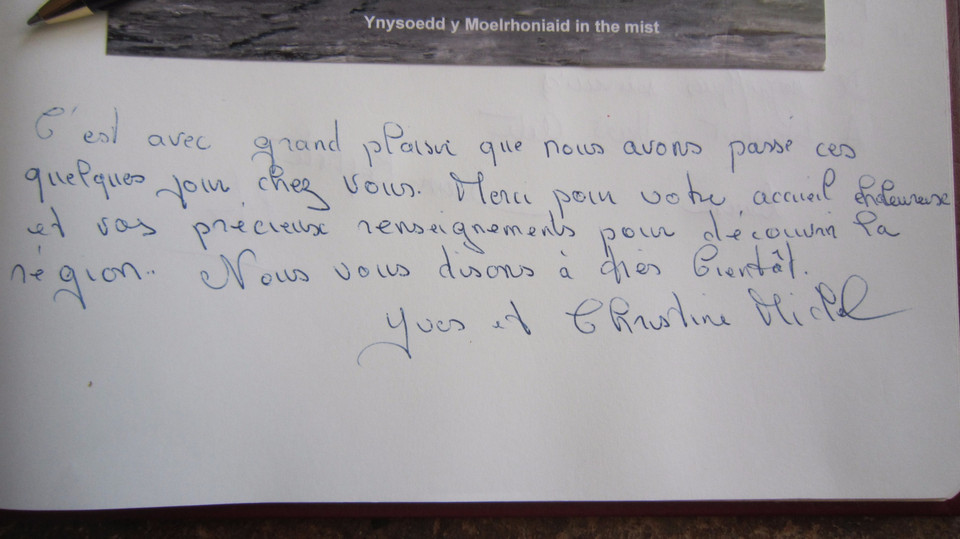 Ynysoedd y Moelrhoniaid in the mist
C'est avec grand plaisir que nous avons passé ces
quelques jour chez vous. Merci pour votre accueil chaleureux
et vos précieux renseignements pour découvrir la
région.. Nous vous disons à très bientôt.
Yves et Christine Michel